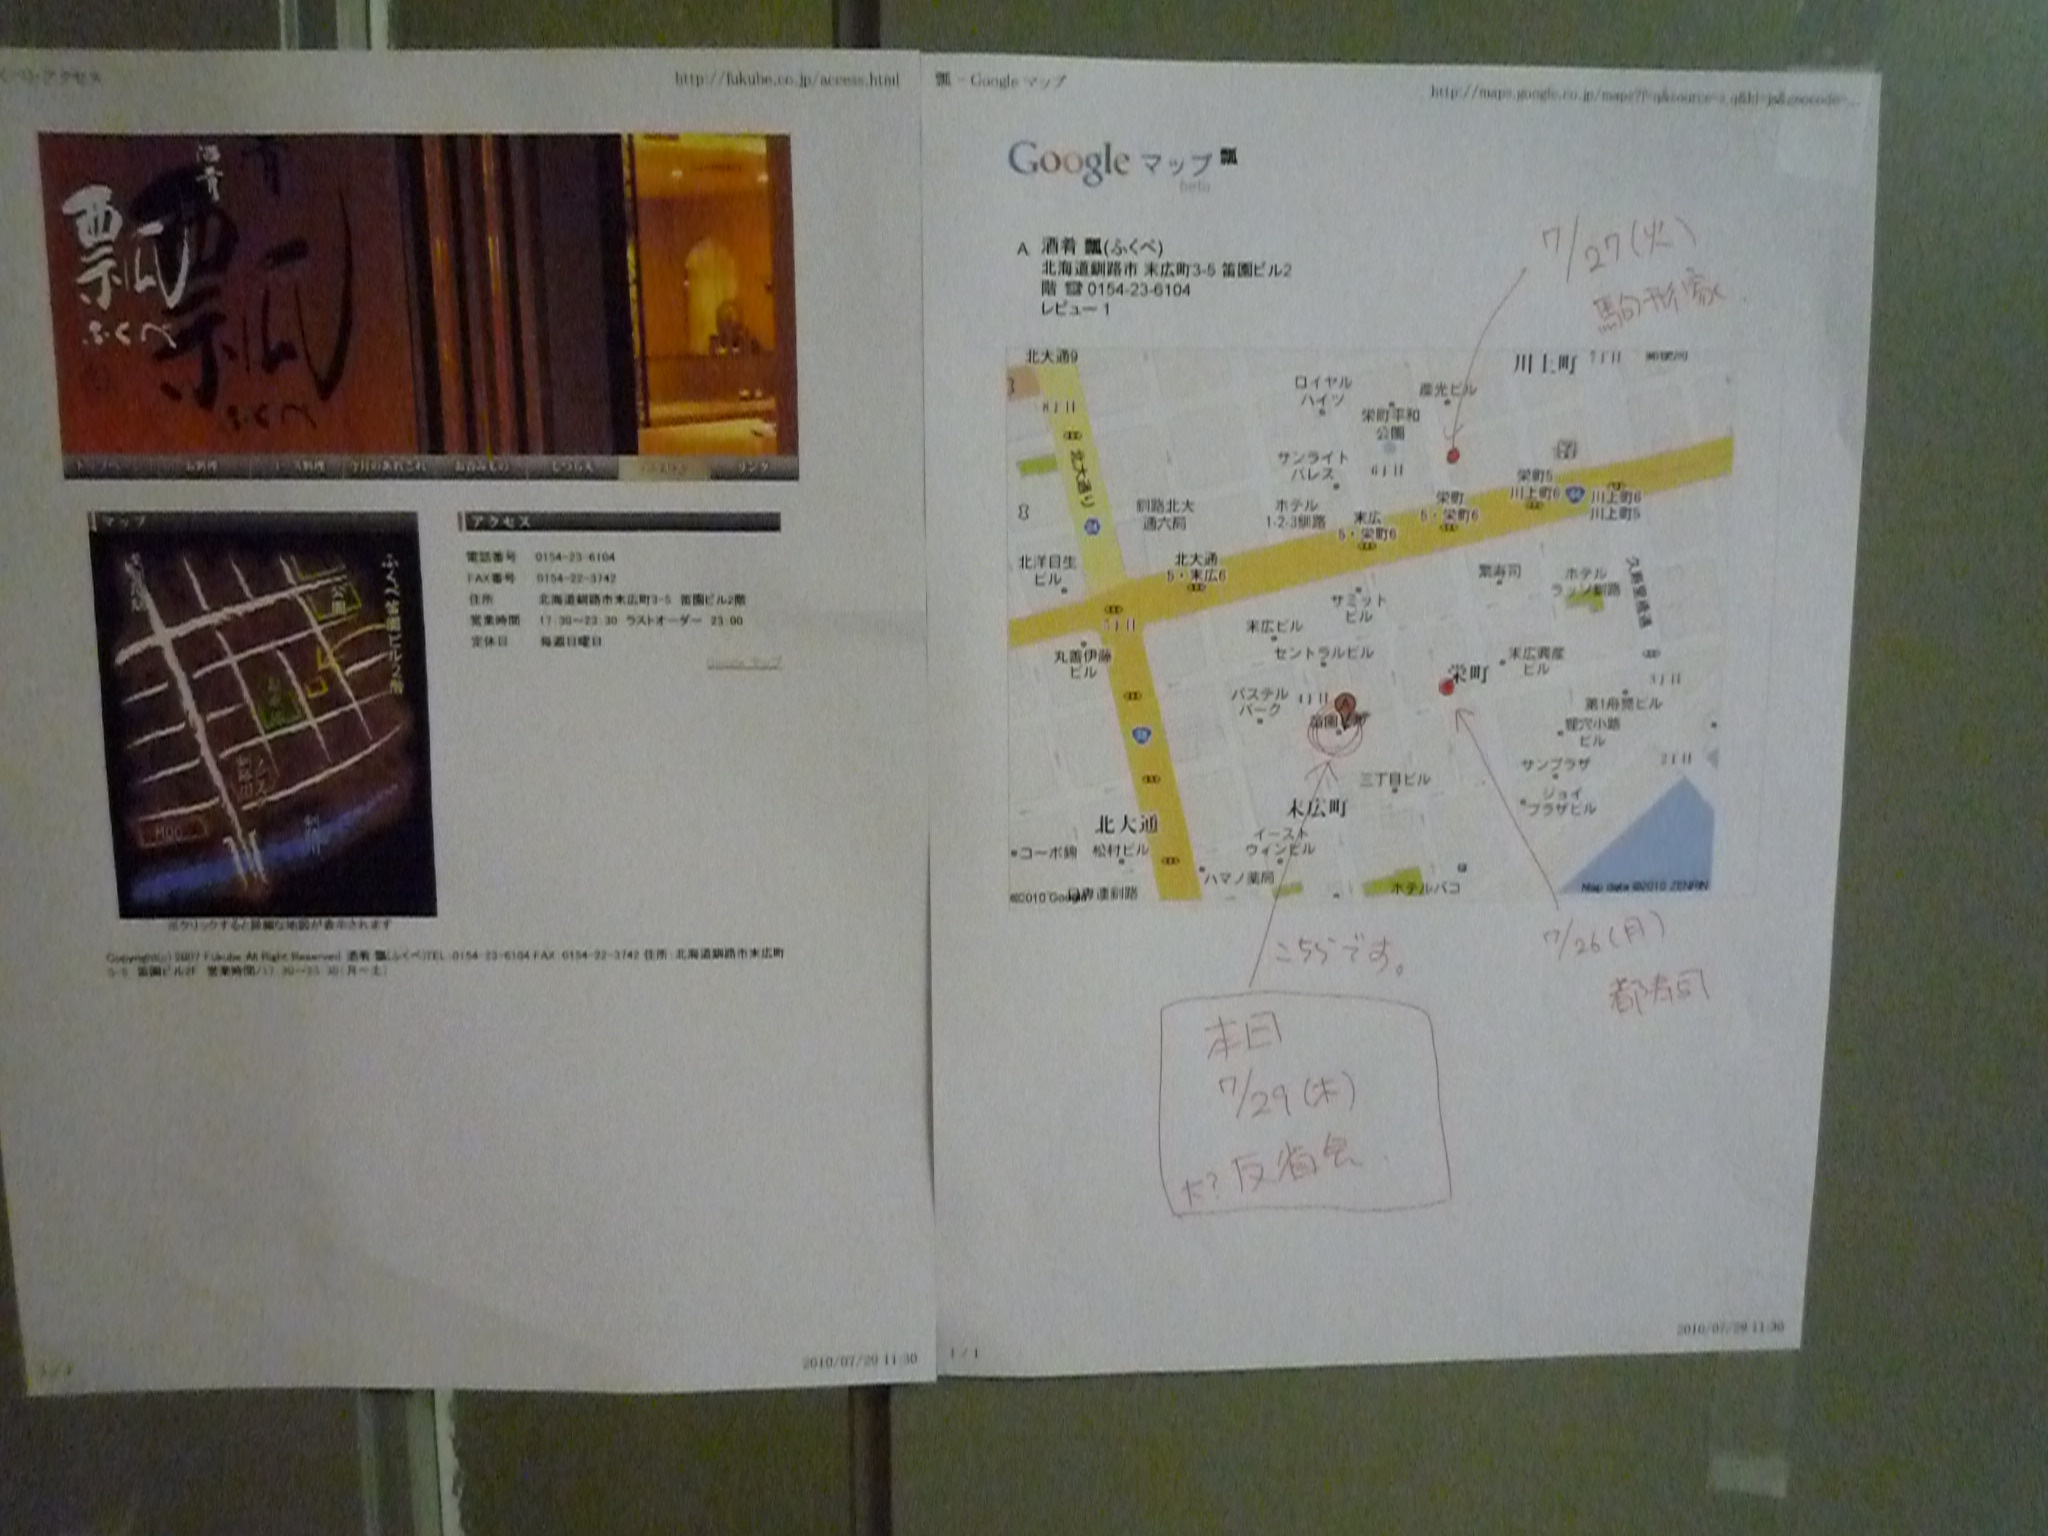 アクセス
http://fukube.co.jp/access.html
酒肴
瓢
ふくべ
ふくべ
リンク
マップ
公園
MOO
釧路川
アクセス
電話番号 0154-23-6104
FAX番号 0154-22-3742
住所 北海道釧路市末広町3-5 笛園ビル2階
営業時間 17:30～23:30 ラストオーダー 23:00
定休日 毎週日曜日
Google マップ
※クリックすると詳細な地図が表示されます
Copyright(c) 2007 Fukube All Right Reserved 酒肴 瓢(ふくべ)TEL:0154-23-6104 FAX 0154-22-3742 住所:北海道釧路市末広町
3-5 笛園ビル2F 営業時間/17:30～23:30(月～土)
1 / 1
2010/07/29 11:30
瓢 - Google マップ
http://maps.google.co.jp/maps?f=q&source=s_q&hl=ja&geocode=...
Google マップ 瓢
beta
A 酒肴 瓢(ふくべ)
北海道釧路市 末広町3-5 笛園ビル2
階 ☎ 0154-23-6104
レビュー 1
7/27(火)
駒形家
北大通9
8丁目
ロイヤル
ハイツ
産光ビル
川上町
7丁目
栄町平和
公園
北大通り
サンライト
パレス
6丁目
栄町5
川上町6
44
川上町6
川上町5
釧路北大
通六局
ホテル
1-2-3釧路
末広
5・栄町6
栄町
5・栄町6
北洋日生
ビル
北大通
5・末広6
繁寿司
ホテル
ラッソ釧路
サミット
ビル
5丁目
末広ビル
セントラルビル
丸善伊藤
ビル
栄町
末広興産
ビル
3丁目
パステル
パーク
4丁目
A
38
第1舟見ビル
狸穴小路
ビル
三丁目ビル
サンプラザ
2丁目
ジョイ
プラザビル
末広町
北大通
イースト
ウィンビル
コーポ錦
松村ビル
ハマノ薬局
ホテルパコ
©2010 Google
日専連釧路
Map data ©2010 ZENRIN
こちらです。
7/26(月)
都寿司
本日
7/29(木)
大?反省会
1 / 1
2010/07/29 11:30